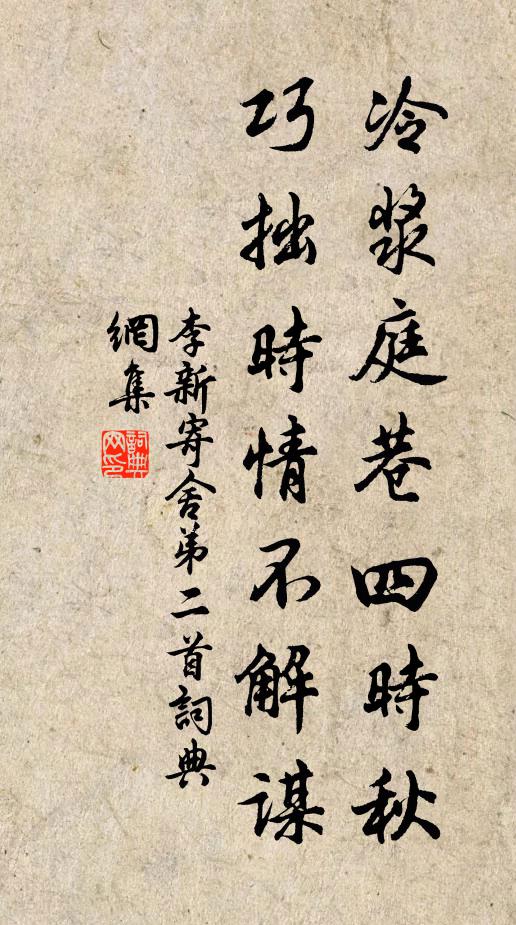 冷漿庭巷四時秋
巧拙時情不解謀
李新寄舍弟二首詞典
網集
詞典
网印